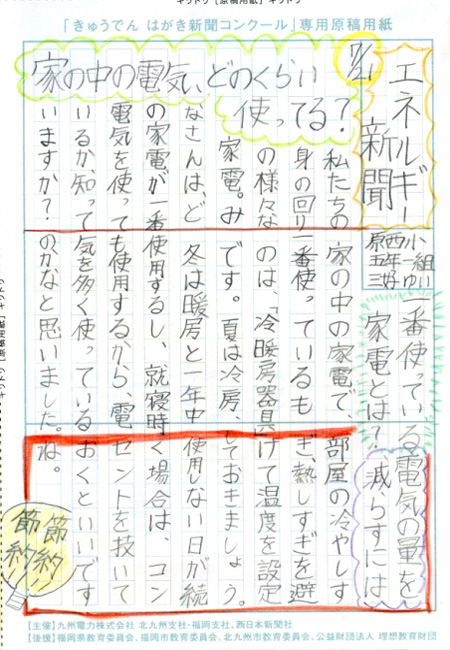 キリトリ【原稿用紙】キリトリ
「きゅうでん はがき新聞コンクール」専用原稿用紙
エネルギー
新聞
7/21
原西小
五年一組
三好ゆい
家の中の電気、どのくらい
使ってる？
私たちの
身の回り
の様々な
家電。み
なさんは、ど
の家電が一番
電気を使って
いるか、知って
いますか？
一番使っている
家電とは？
家の中の家電で、
一番使っているも
のは、「冷暖房器具」
です。夏は冷房、
冬は暖房と一年中
使用するし、就寝時
も使用するから、電
気を多く使っている
のかなと思いました。
電気の量を
減らすには
部屋の冷やしす
ぎ、熱しすぎを避
けて温度を設定
しておきましょう。
使用しない日が続
く場合は、コン
セントを抜いて
おくといいです
ね。
節約
節約!!
キリトリ【原稿用紙】キリトリ
【主催】九州電力株式会社 北九州支社・福岡支社、西日本新聞社
【後援】福岡県教育委員会、福岡市教育委員会、北九州市教育委員会、公益財団法人 理想教育財団